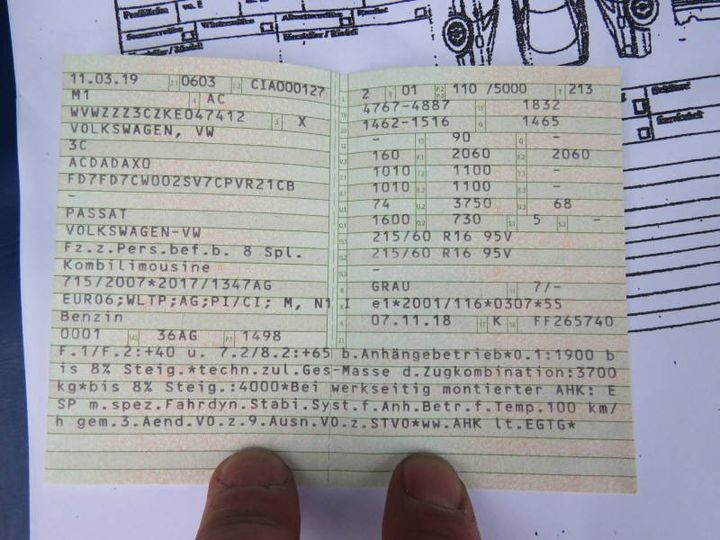 11.03.19 0603 CIA000127
M1 AC
WVWZZZ3CZKE047412 X
VOLKSWAGEN, VW
3C
ACDADAX0
FD7FD7CW002SV7CPVR21CB
-
PASSAT
VOLKSWAGEN-VW
Fz.z.Pers.bef.b. 8 Spl.
Kombilimousine
715/2007*2017/1347AG
EURO6;WLTP;AG;PI/CI; M, N1 I
Benzin
0001 36AG 1498
2 01 110 /5000 213
4767-4887 1832
1462-1516 1465
- 90 -
160 2060 2060
1010 1100 -
1010 1100 -
74 3750 68
1600 730 5 -
215/60 R16 95V
215/60 R16 95V
-
GRAU 7/-
e1*2001/116*0307*55
07.11.18 K FF265740
F.1/F.2:+40 u. 7.2/8.2:+65 b.Anhängebetrieb*0.1:1900 b
is 8% Steig.*techn.zul.Ges-Masse d.Zugkombination:3700
kg*bis 8% Steig.:4000*Bei werkseitig montierter AHK: E
SP m.spez.Fahrdyn.Stabi.Syst.f.Anh.Betr.f.Temp.100 km/
h gem.3.Aend.VO.z.9.Ausn.VO.z.STVO*ww.AHK lt.EGTG*